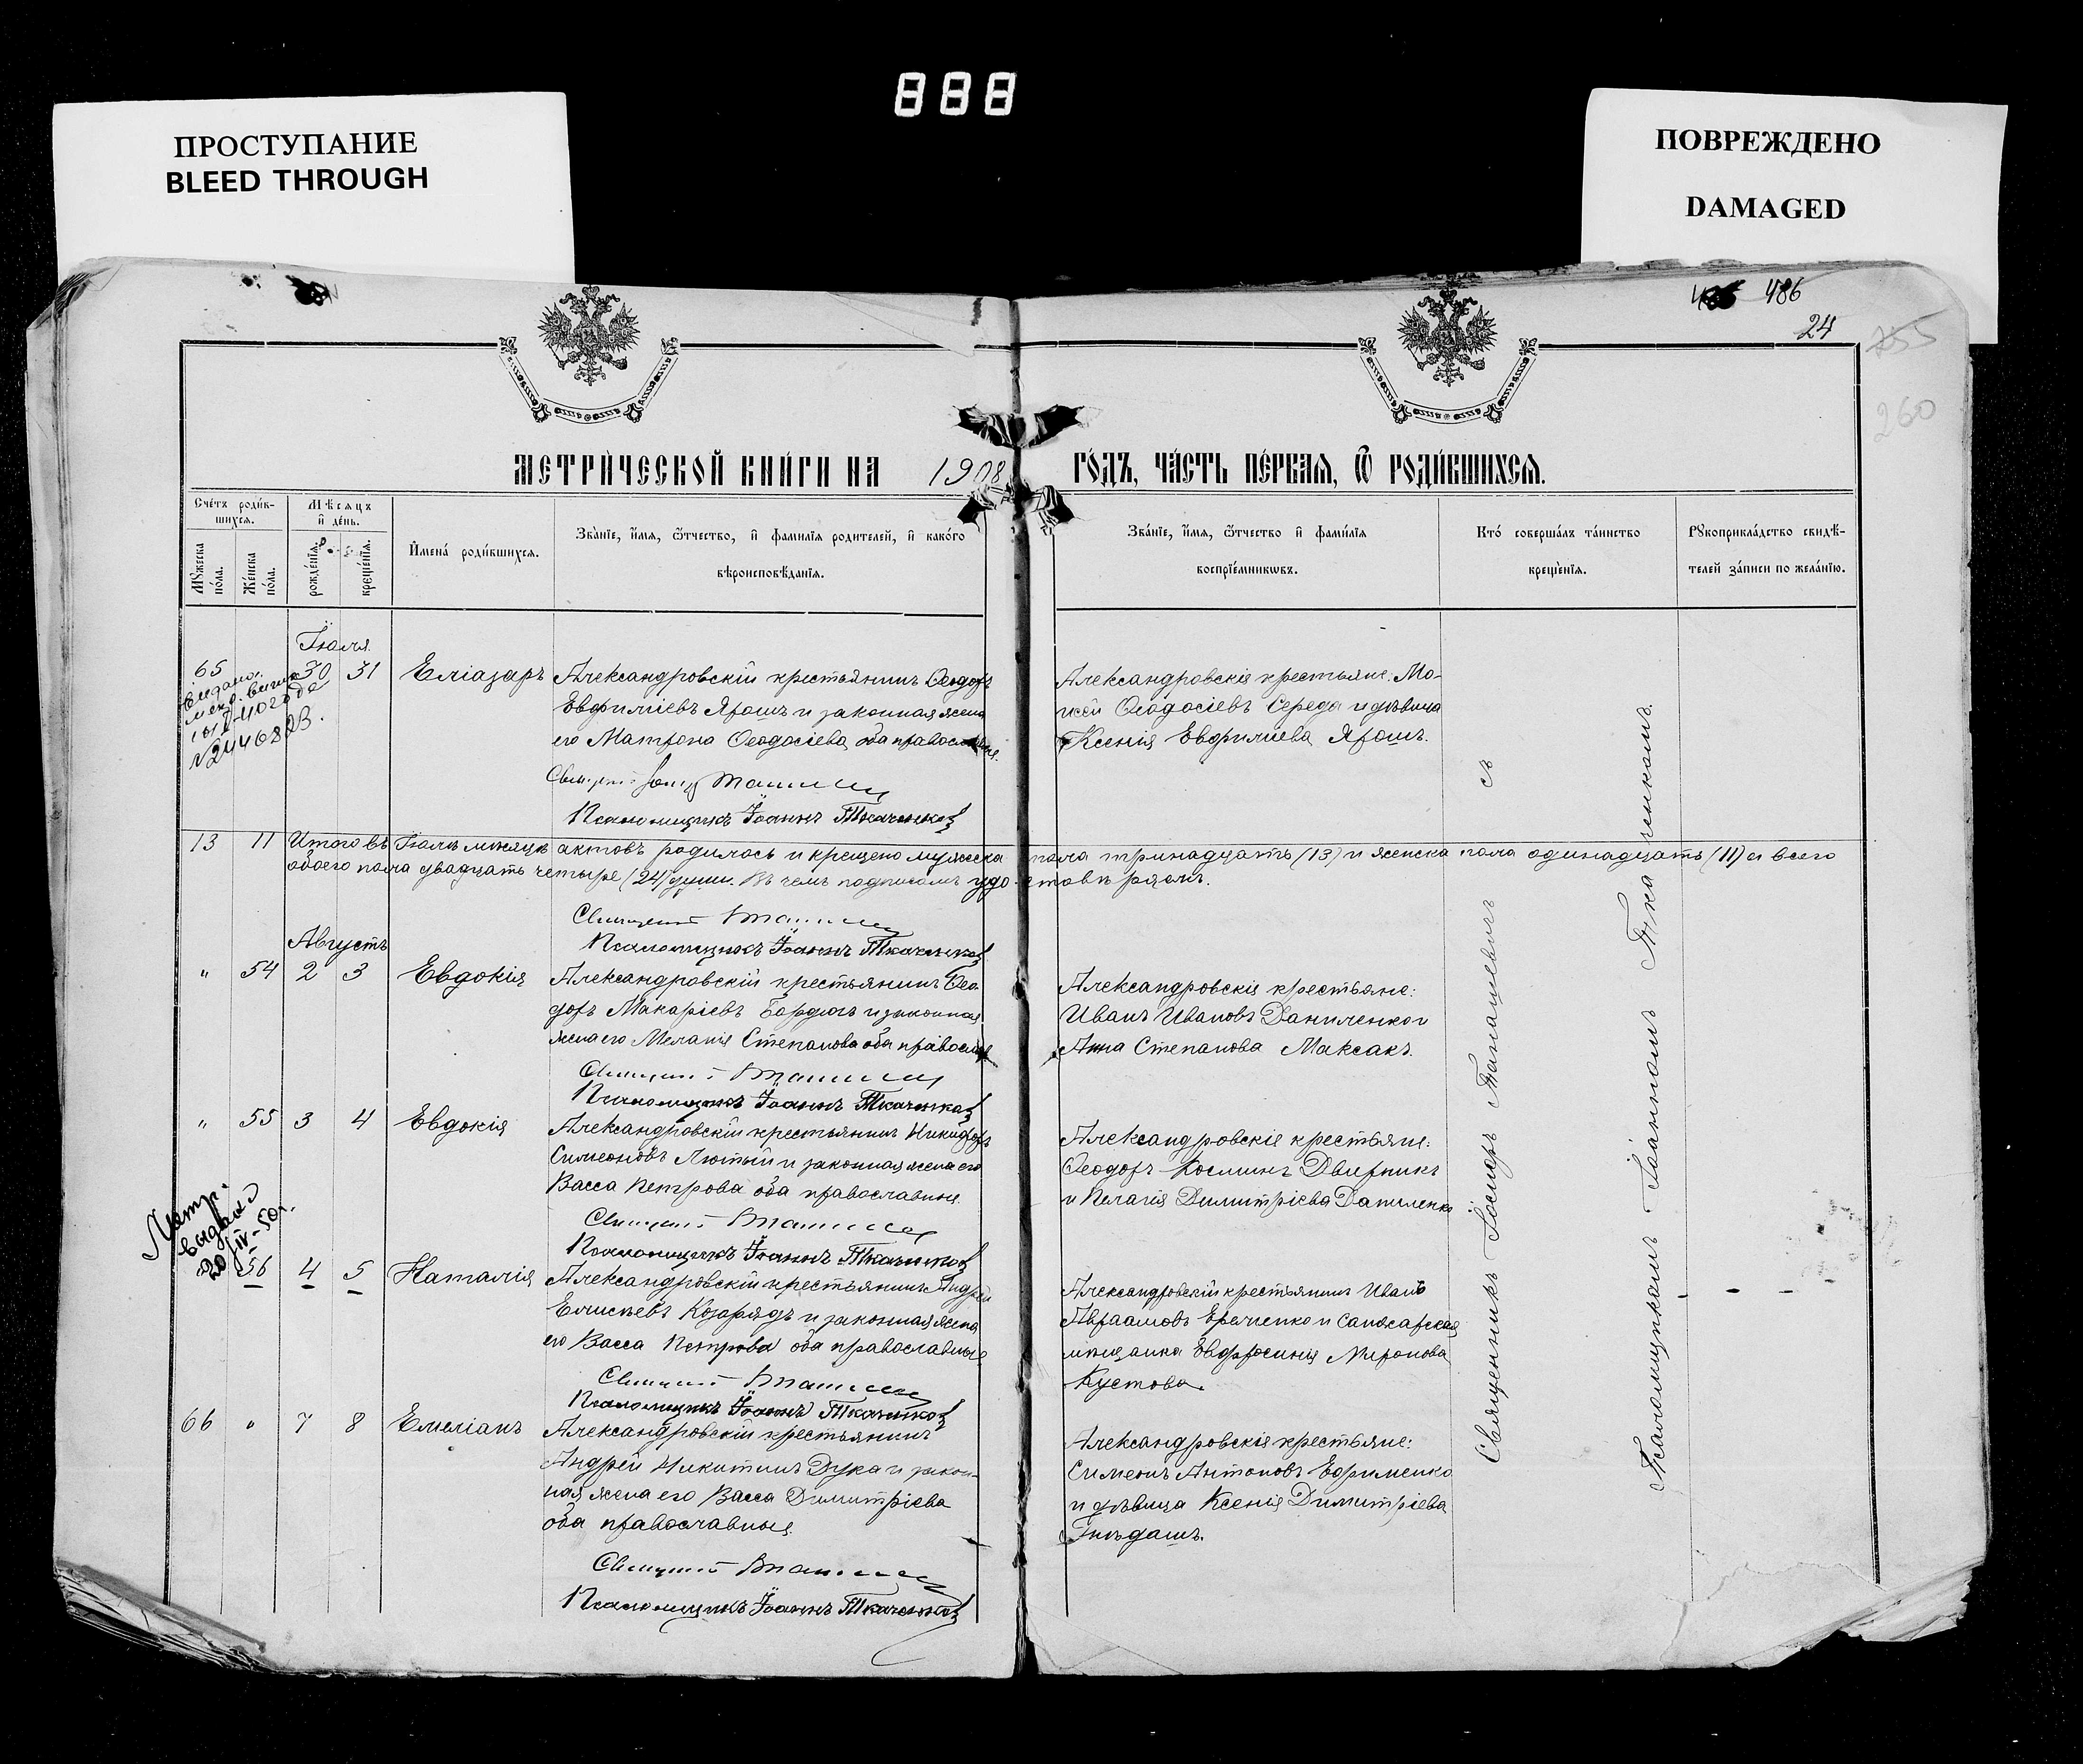 888
ПРОСТУПАНИЕ
BLEED THROUGH
ПОВРЕЖДЕНО
DAMAGED
486
24
255
260
МЕТРИ́ЧЕСКОЙ КНИ́ГИ НА 1908 ГО́ДЪ, ЧА́СТЬ ПЕ́РВАЯ, Ѿ РОДИ́ВШИХСЯ.
Сче́тъ роди́в-
шихся.
Мѣсяцъ
и҆ де́нь.
Мꙋжеска по́ла.
Же́нска по́ла.
рожде́нїя.
креще́нїя.
И҆мена̀ роди́вшихся.
Зва́нїе, и҆́мя, ѻ҆́тчество, и҆ фами́лїя роди́телей, и҆ како́го
вѣроисповѣ́данїя.
Зва́нїе, и҆́мя, ѻ҆́тчество и҆ фами́лїя
воспрїе́мниковъ.
Кто́ соверша́лъ та́инство
креще́нїя.
Рꙋкоприкла́дство свидѣ́-
телей за́писи по жела́нїю.
Іюля
65 30 31 Еліазаръ Александровскій крестьянинъ Ѳеодоръ
Евфиміевъ Ярошъ и законная жена
его Матрона Ѳеодосіева, оба православные.
Псаломщикъ Іоаннъ Ткаченко
Александровскіе крестьяне: Мо-
исей Ѳеодосіевъ Середа и дѣвица
Ксенія Евфиміева Ярошъ.
13 11 Итого въ Іюлѣ мѣсяцѣ актовъ родилось и крещено мужеска пола тринадцать (13) и женска пола одинадцать (11) а всего
обоего пола двадцать четыре (24) души. Въ чемъ подписомъ удостовѣряемъ.
Псаломщикъ Іоаннъ Ткаченко
Августъ
" 54 2 3 Евдокія Александровскій крестьянинъ Ѳео-
доръ Макаріевъ и законная
жена его Меланія Степанова оба православные
Псаломщикъ Іоаннъ Ткаченко
Александровскіе крестьяне:
Иванъ Ивановъ Даниленко и
Анна Степанова Максакъ.
" 55 3 4 Евдокія Александровскій крестьянинъ Никифоръ
Симеоновъ Лютый и законная жена его
Васса Петрова оба православные
Псаломщикъ Іоаннъ Ткаченко
Александровскіе крестьяне:
Ѳеодоръ Косминъ Дворникъ
и Пелагія Димитріева Даниленко
Метр.
выдана
20/IV-50г.
56 4 5 Наталія Александровскій крестьянинъ Андрей
Елисѣевъ Козарядъ и законная жена
его Васса Петрова оба православные
Псаломщикъ Іоаннъ Ткаченко
Александровскій крестьянинъ Иванъ
Авраамовъ Еременко и
мѣщанка Евфросинія Миронова
Кустова.
66 " 7 8 Емеліанъ Александровскій крестьянинъ
Андрей Никитинъ Дука и закон-
ная жена его Васса Димитріева
оба православные
Псаломщикъ Іоаннъ Ткаченко
Александровскіе крестьяне:
Симеонъ Антоновъ Ефименко
и дѣвица Ксенія Димитріева
Гнѣдашъ.
Священникъ Іосифъ Танашевичъ съ
Псаломщикомъ Іоанномъ Ткаченкомъ.